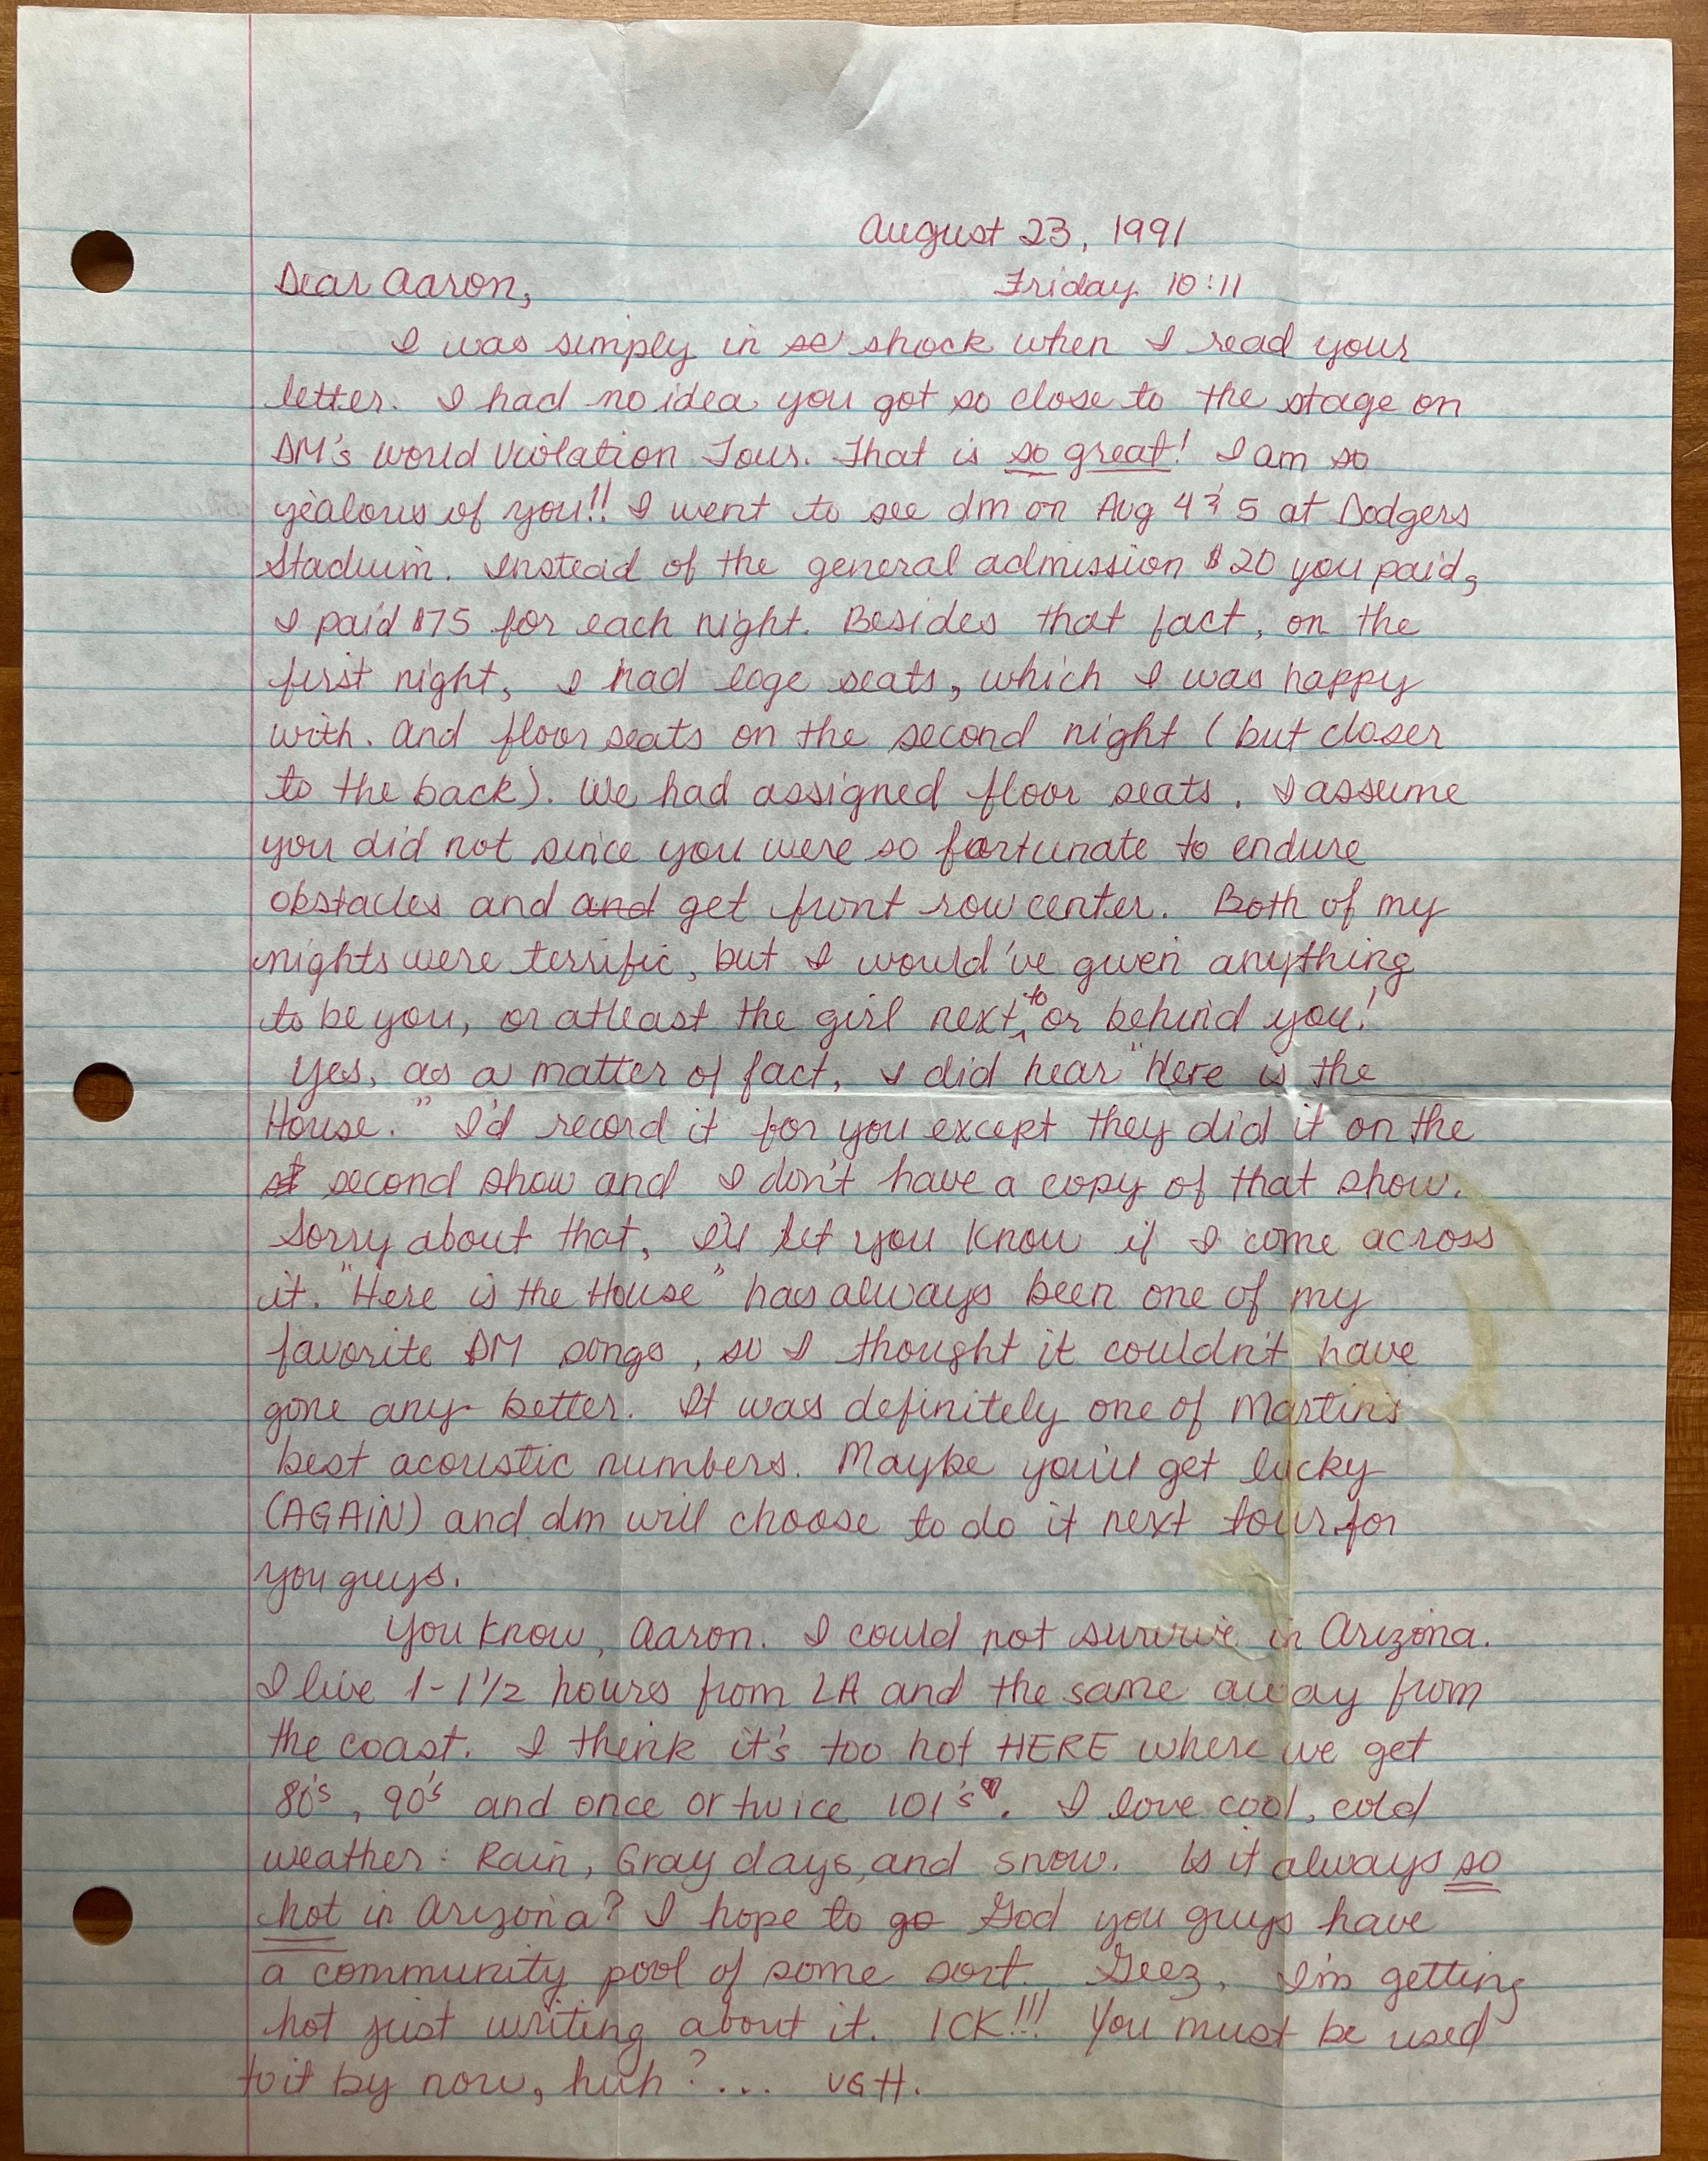 August 23, 1991
Dear Aaron, Friday 10:11
I was simply in so shock when I read your
letter. I had no idea you got so close to the stage on
DM's World Violation Tour. That is so great! I am so
jealous of you!! I went to see dm on Aug 4 & 5 at Dodgers
Stadium. Instead of the general admission $20 you paid,
I paid $75 for each night. Besides that fact, on the
first night, I had loge seats, which I was happy
with. And floor seats on the second night (but closer
to the back). We had assigned floor seats. I assume
you did not since you were so fortunate to endure
obstacles and and get front row center. Both of my
nights were terrific, but I would've given anything
to be you, or atleast the girl next to or behind you!
Yes, as a matter of fact, I did hear "Here is the
House." I'd record it for you except they did it on the
st second show and I don't have a copy of that show.
Sorry about that, I'll let you know if I come across
it. "Here is the House" has always been one of my
favorite DM songs, so I thought it couldn't have
gone any better. It was definitely one of Martin's
best acoustic numbers. Maybe you'll get lucky
(AGAIN) and dm will choose to do it next tour for
you guys.
You know, Aaron. I could not survive in Arizona.
I live 1-1 1/2 hours from LA and the same away from
the coast. I think it's too hot HERE where we get
80's, 90's and once or twice 101's. I love cool, cold
weather: Rain, Gray days, and snow. Is it always so
hot in Arizona? I hope to go God you guys have
a community pool of some sort. Geez, I'm getting
hot just writing about it. ICK!!! You must be used
to it by now, huh?... UGH.